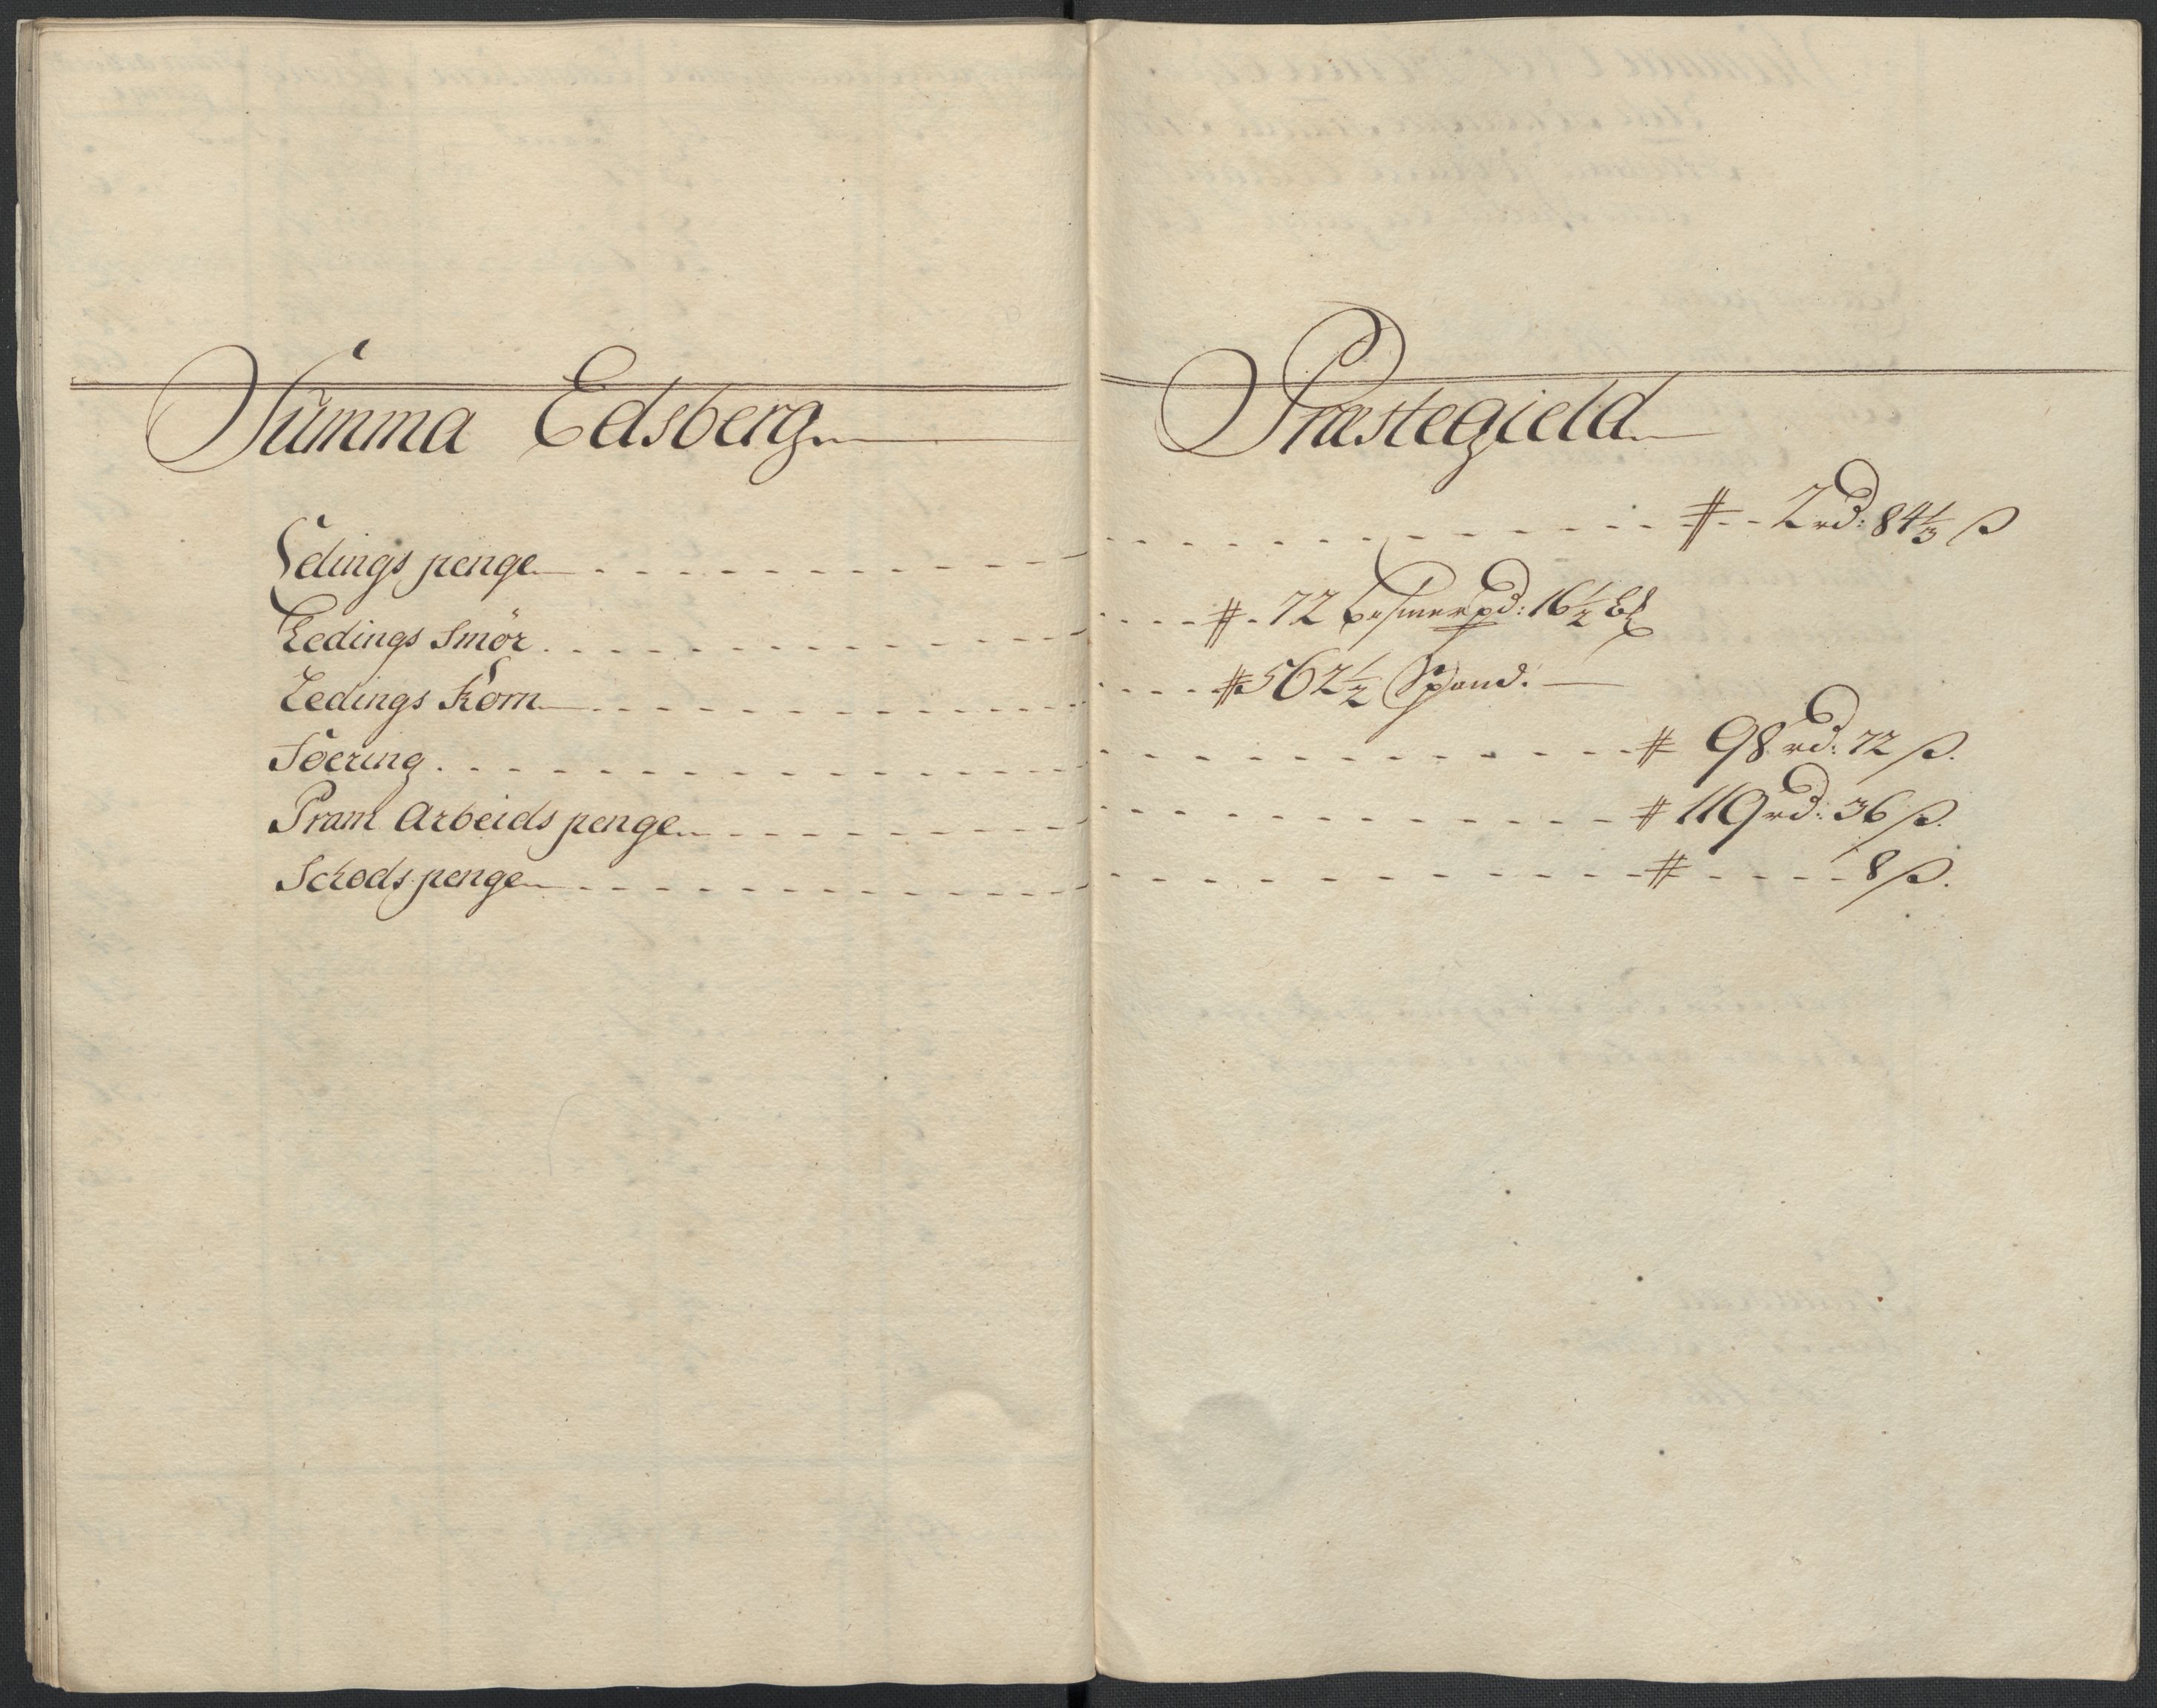 Summa Edsberg Præstegield
Ledings penge # 2 rd: 84 1/3 ß
Ledings Smör # 72 besmerpd: 16 1/2 ℔
Ledings Korn # 562 1/2 Spand.
Foering # 98 rd: 72 ß.
Pram Arbeids penge # 119 rd: 36 ß.
Schods penge # 8 ß.